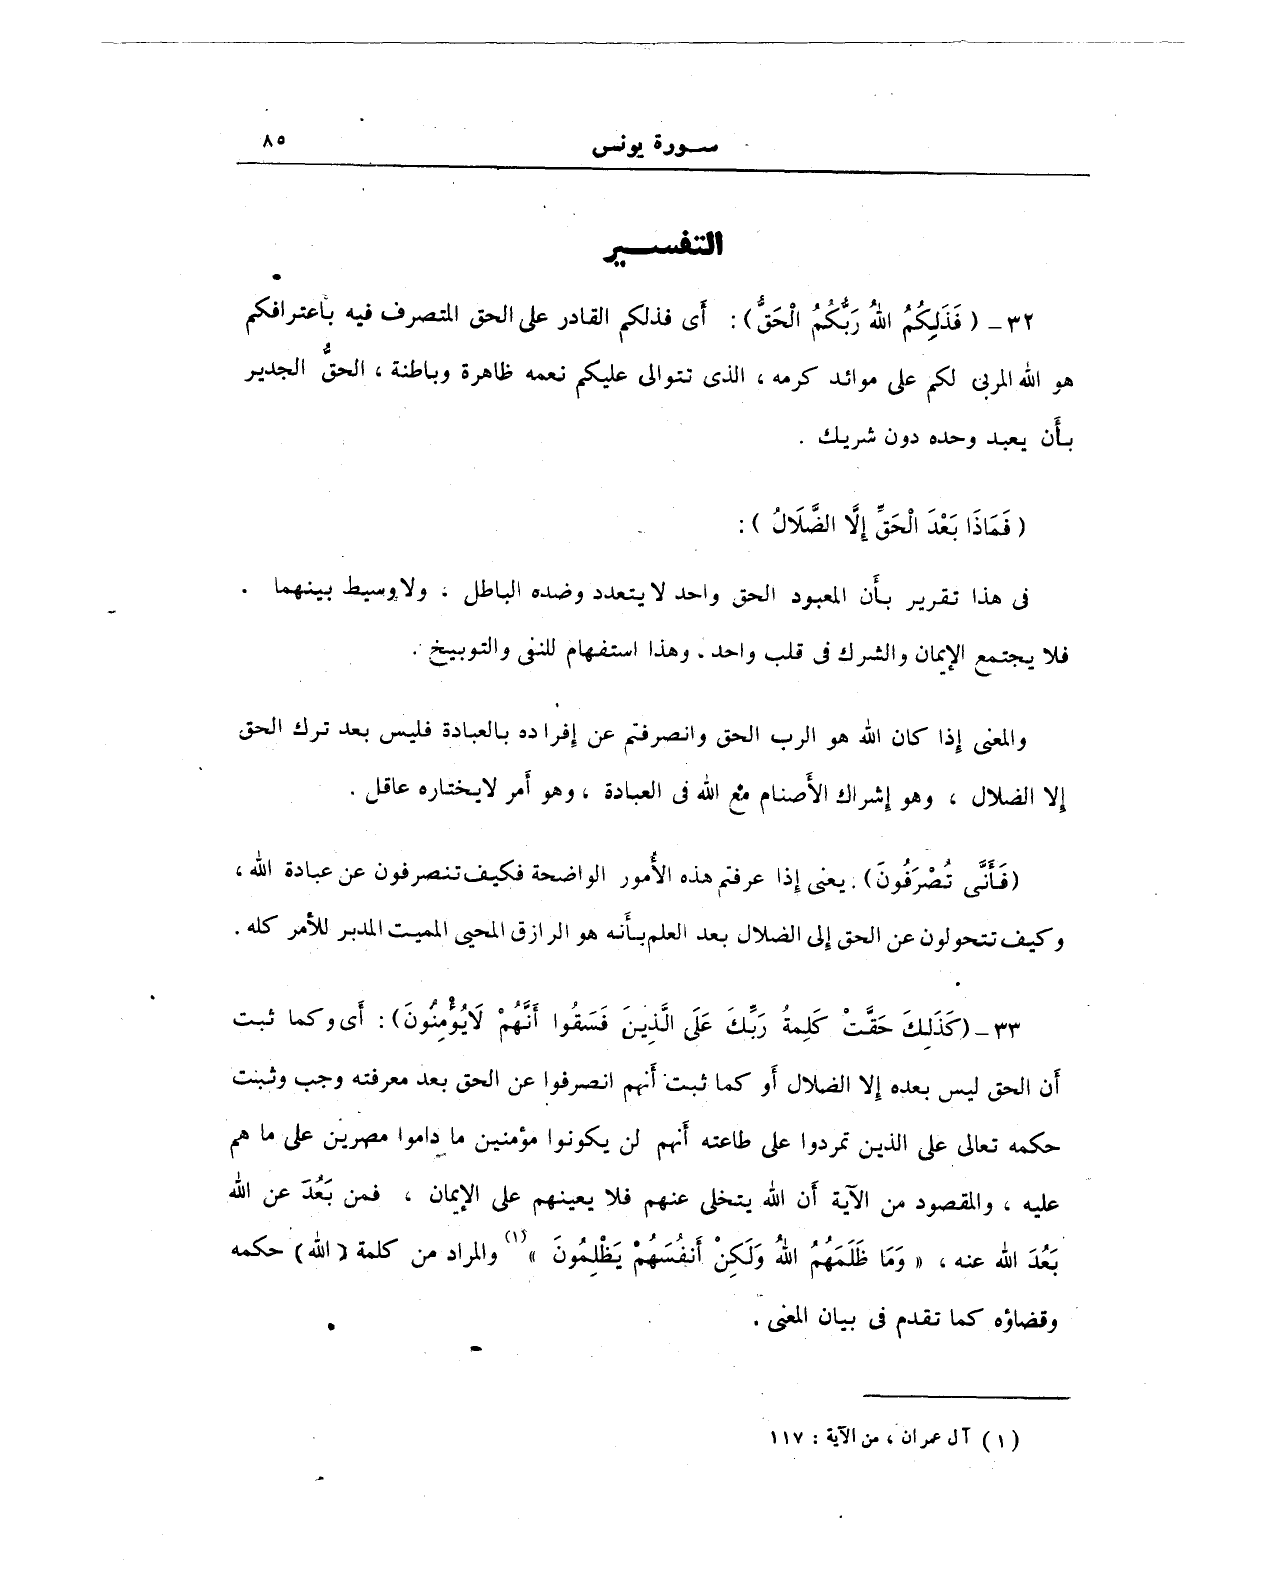 سورة يونس
٨٥
التفسير
٣٢ - ( فَذَلِكُمُ اللهُ رَبُّكُمُ الْحَقُّ ) : أَى فذلكم القادر على الحق المتصرف فيه بأعترافكم
هو الله المربى لكم على موائد كرمه ، الذى تتوالى عليكم نعمه ظاهرة وباطنة ، الحقُّ الجدير
بأَن يعبد وحده دون شريك .
( فَمَاذَا بَعْدَ الْحَقِّ إِلَّا الضَّلَالُ ) :
فى هذا تقرير بأَن المعبود الحق واحد لا يتعدد وضده الباطل ، ولا وسيط بينهما .
فلا يجتمع الإيمان والشرك فى قلب واحد . وهذا استفهام للنفى والتوبيخ .
والمعنى إذا كان الله هو الرب الحق وانصرفتم عن إفراده بالعبادة فليس بعد ترك الحق
إلا الضلال ، وهو إشراك الأَصنام مع الله فى العبادة ، وهو أَمر لايختاره عاقل .
( فَأَنَّى تُصْرَفُونَ ) . يعنى إذا عرفتم هذه الأُمور الواضحة فكيف تنصرفون عن عبادة الله ،
وكيف تتحولون عن الحق إلى الضلال بعد العلم بأَنه هو الرازق المحيى المميت المدبر للأَمر كله .
٣٣ - ( كَذَلِكَ حَقَّتْ كَلِمةُ رَبِّكَ عَلَى الَّذِينَ فَسَقُوا أَنَّهُمْ لَايُؤْمِنُونَ ) : أَى وكما ثبت
أَن الحق ليس بعده إلا الضلال أَو كما ثبت أَنهم انصرفوا عن الحق بعد معرفته وجب وثبت
حكمه تعالى على الذين تمردوا على طاعته أَنهم لن يكونوا مؤمنين ما داموا مصرين على ما هم
عليه ، والمقصود من الآية أَن الله يتخلى عنهم فلا يعينهم على الإيمان ، فمن بَعُدَ عن الله
بَعُدَ الله عنه ، « وَمَا ظَلَمَهُمُ اللهُ وَلَكِنْ أَنفُسَهُمْ يَظْلِمُونَ » (١) والمراد من كلمة ( الله ) حكمه
وقضاؤه كما تقدم فى بيان المعنى .
(١) آل عمران ، من الآية : ١١٧